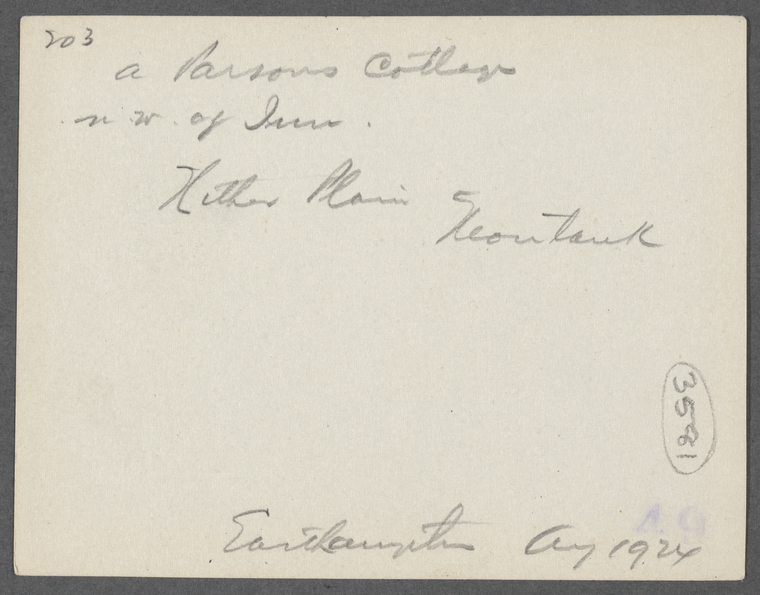 203
a Parsons Cottage
n.w. of Inn.
Hither Plain
Montauk
3581
49
Easthampton Aug 1924